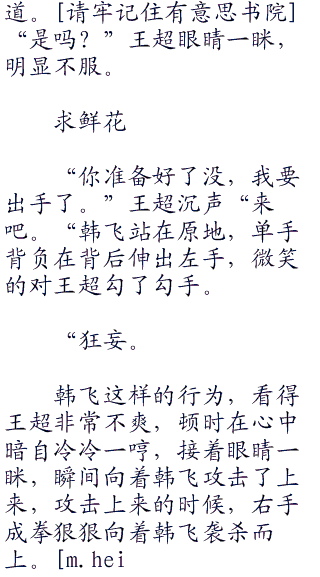 道。[请牢记住有意思书院]
“是吗？”王超眼睛一眯，
明显不服。
求鲜花
“你准备好了没，我要
出手了。”王超沉声“来
吧。“韩飞站在原地，单手
背负在背后伸出左手，微笑
的对王超勾了勾手。
“狂妄。
韩飞这样的行为，看得
王超非常不爽，顿时在心中
暗自冷冷一哼，接着眼睛一
眯，瞬间向着韩飞攻击了上
来，攻击上来的时候，右手
成拳狠狠向着韩飞袭杀而
上。[m.hei